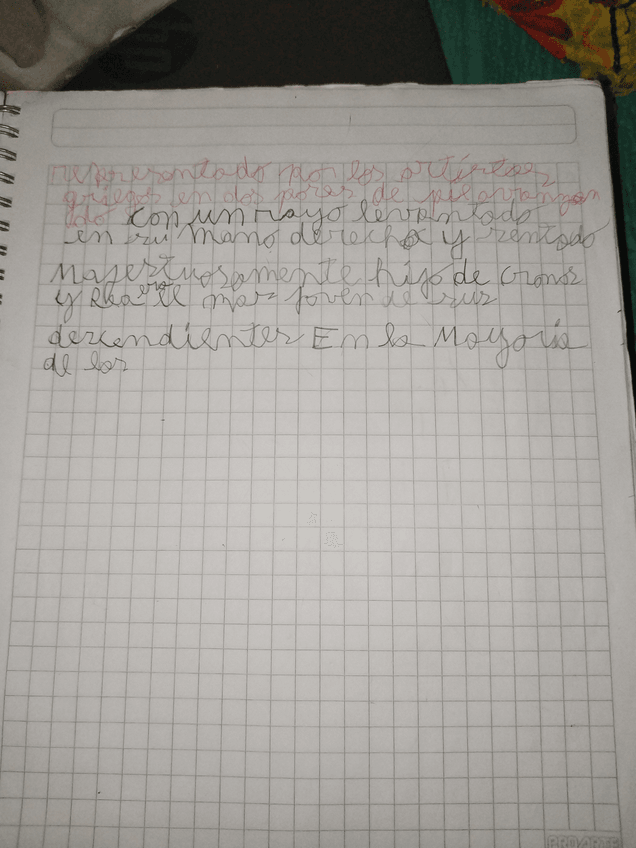 representado por los artistas
griegos en dos poses de pie avanzan
do con un rayo levantado
en su mano derecha y sentado
Majestuosamente hijo de Cronos
y Rea era el mas joven de sus
descendientes En la Mayoria
de los
PROARTE